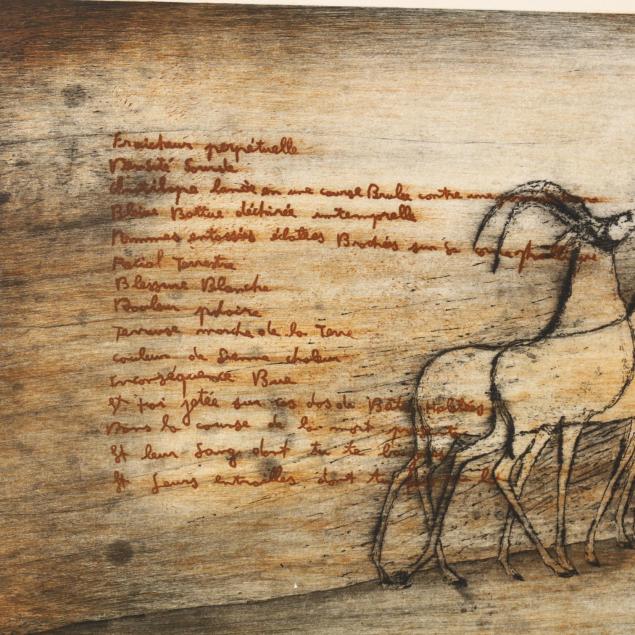 Fraicheur perpétuelle
Densité Sourde
lancée en une course Brulée contre une
Bleue Battue déchirée intemporelle
Pommes entassées éclatées Brochés sur Se
Terrestre
Blessure Blanche
Bouleur polaire
Terreuse marche de la Terre
couleur de Sienne chaleur
inconséquence Bue
Et toi jetée sur ces dos de Bêtes
Dans la course de la mort
Et leur Sang dont tu te
Et Leurs entrailles dont